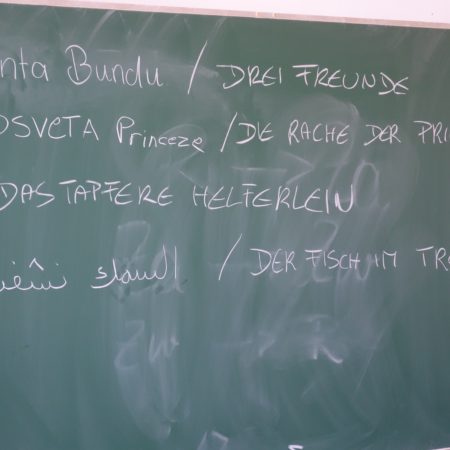 nta Bundu / DREI FREUNDE
OSVETA Princeze / DIE RACHE DER PRI
DAS TAPFERE HELFERLEIN
السمك / DER FISCH IM TR